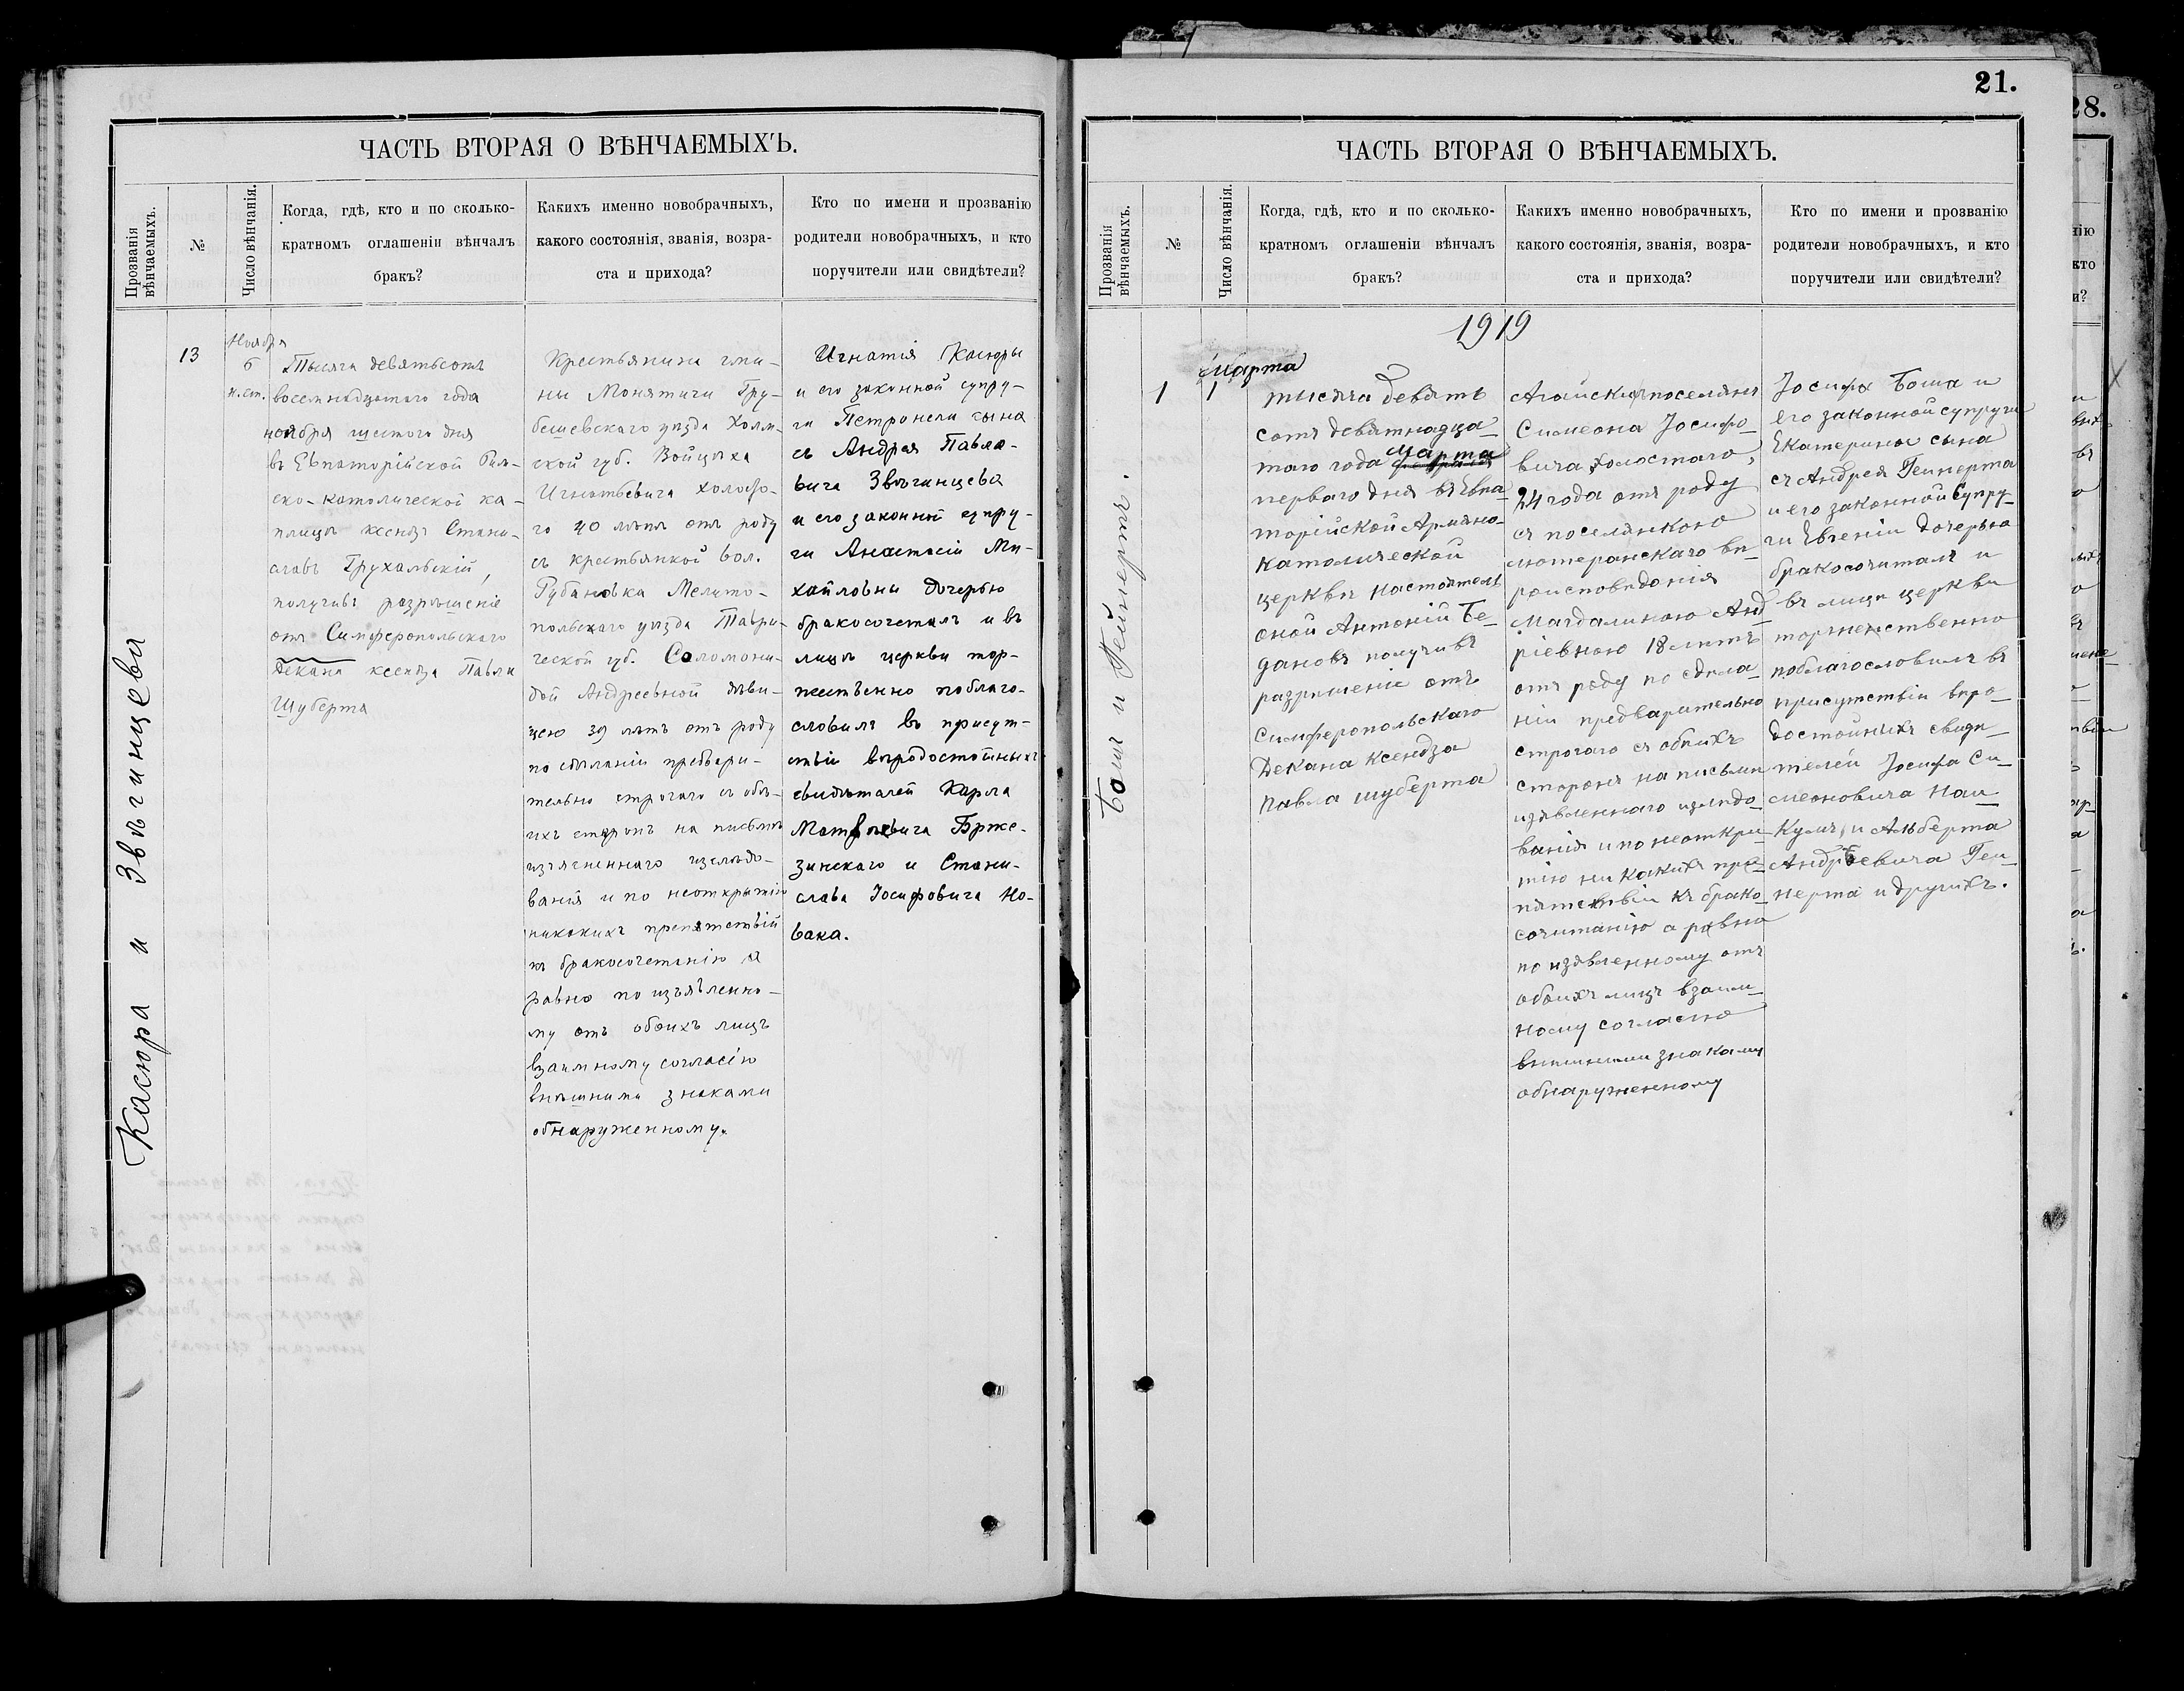 ЧАСТЬ ВТОРАЯ О ВѢНЧАЕМЫХЪ.
Прозванія вѣнчаемыхъ.
№
Число вѣнчанія.
Когда, гдѣ, кто и по сколько-
кратномъ оглашеніи вѣнчалъ
бракъ?
Какихъ именно новобрачныхъ,
какого состоянія, званія, возра-
ста и прихода?
Кто по имени и прозванію
родители новобрачныхъ, и кто
поручители или свидѣтели?
Касюра и Звѣгинцева
13
Ноября
6
н.ст.
Тысяча девятьсотъ
восемнадцатаго года
ноября шестого дня
въ Евпаторійской Рим-
ско-католической ка-
плицѣ ксендзъ Стани-
славъ Грухальскій,
получивъ разрѣшеніе
отъ Симферопольскаго
Декана ксендза Павла
Шуберта
Крестьянина гми-
ны Монятичи Гру-
бешевскаго уѣзда Холм-
ской губ. Войцѣха
Игнатьевича холосто-
го 40 лѣтъ отъ роду
съ крестьянкой вол.
Рубановка Мелито-
польскаго уѣзда Таври-
ческой губ. Соломони-
дой Андреевной дѣви-
цею 39 лѣтъ отъ роду
по сдѣланіи предвари-
тельно строгаго съ обѣ-
ихъ сторонъ на письмѣ
изъясненнаго изслѣдо-
ванія и по неоткрытію
никакихъ препятствій
къ бракосочетанію а
равно по изъявленно-
му отъ обоихъ лицъ
взаимному согласію
внѣшними знаками
обнаруженному.
Игнатія Касюры
и его законной супру-
ги Петронели сына
съ Андрея Павло-
вича Звѣгинцева
и его законной супру-
ги Анастасіи Ми-
хайловны дочерью
бракосочеталъ и въ
лицѣ церкви тор-
жественно поблаго-
словилъ въ присут-
ствіи вѣродостойныхъ
свидѣтелей Карла
Матвѣевича Брже-
зинскаго и Стани-
слава Іосифовича Но-
вака.
21.
ЧАСТЬ ВТОРАЯ О ВѢНЧАЕМЫХЪ.
Прозванія вѣнчаемыхъ.
№
Число вѣнчанія.
Когда, гдѣ, кто и по сколько-
кратномъ оглашеніи вѣнчалъ
бракъ?
Какихъ именно новобрачныхъ,
какого состоянія, званія, возра-
ста и прихода?
Кто по имени и прозванію
родители новобрачныхъ, и кто
поручители или свидѣтели?
1919
Бошъ и Гейнертъ.
1
Марта
1
тысяча девять
сотъ девятнадца-
таго года Марта
перваго дня въ Евпа-
торійской Армяно-
католической
церквѣ настоятель
оной Антоній Бе-
дановъ получивъ
разрѣшеніе отъ
Симферопольскаго
Декана Ксендза
Павла Шуберта
поселяни
Симеона Іосифо-
вича холостаго,
24 года отъ роду
съ поселянкою
лютеранскаго вѣ-
роисповѣданія
Магдалиною Анд
ріевною 18 лѣтъ
отъ роду по сдѣла-
ніи предварительно
строгаго съ обѣихъ
сторонъ на письмѣ
изявленного изслѣдо-
ванія и по неоткри-
тію никакихъ пре-
пятствіи къ брако-
сочитанію а равно
по изявленному отъ
обоихъ лицъ взаим-
ному согласію
внѣшними знаками
обнаруженному
Іосифа Боша и
его законной супруги
Екатерины сына
съ Андрея Гейнерта
и его законной Супру-
ги Евгеніи дочерью
бракосочиталъ и
въ лицѣ церкви
торжественно
поблагословилъ въ
присутствіи вѣро-
достойныхъ свидѣ-
телей Іосифа Си-
меоновича
и Альберта
Андреевича Геи-
нерта и другихъ.
28.
нію
кто
и?